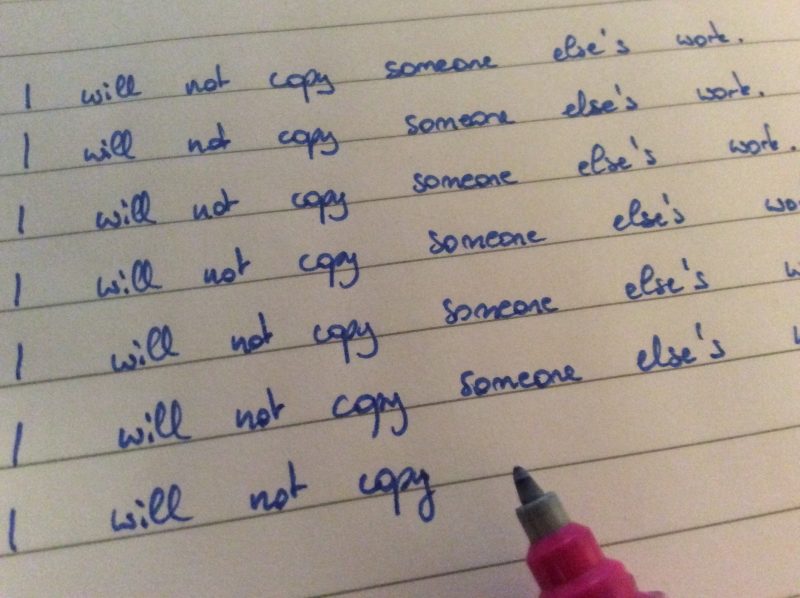 I will not copy someone else's work.
I will not copy someone else's work.
I will not copy someone else's work.
I will not copy someone else's wo
I will not copy someone else's w
I will not copy someone else's
I will not copy